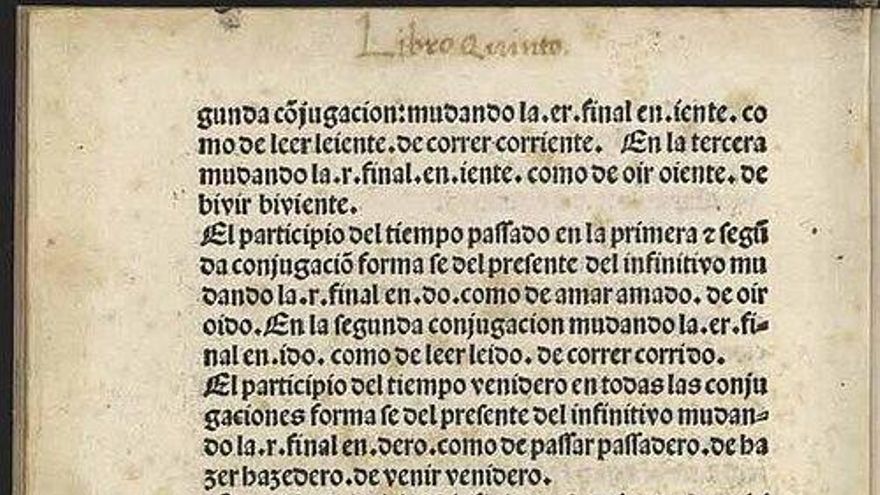 Libro Quinto.
gunda cõjugacion: mudando la .er. final en .iente. co
mo de leer leiente. de correr corriente. En la tercera
mudando la .r. final. en .iente. como de oir oiente. de
bivir biviente.
El participio del tiempo passado en la primera ⁊ segũ
da conjugaciõ forma se del presente del infinitivo mu
dando la .r. final en .do. como de amar amado. de oir
oido. En la segunda conjugacion mudando la .er. fi-
nal en .ido. como de leer leido. de correr corrido.
El participio del tiempo venidero en todas las conju
gaciones forma se del presente del infinitivo mudan-
do la .r. final en .dero. como de passar passadero. de ha
zer hazedero. de venir venidero.